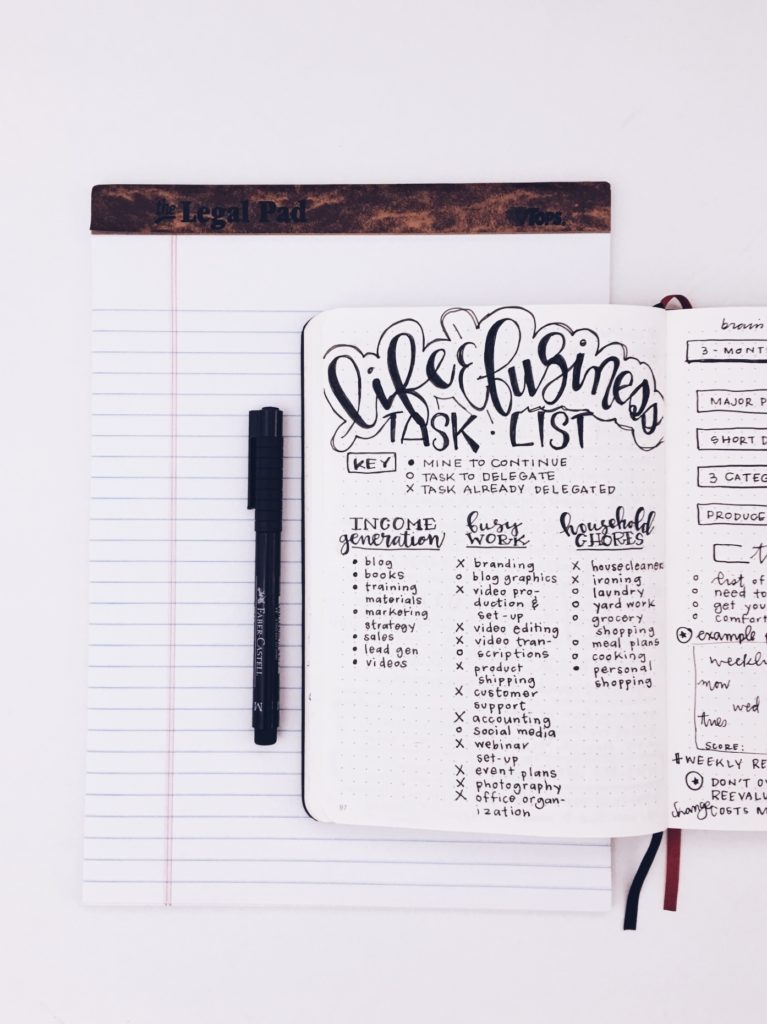 the Legal Pad
TOPS.
life & business
TASK · LIST
KEY
• MINE TO CONTINUE
o TASK TO DELEGATE
x TASK ALREADY DELEGATED
INCOME
generation
• blog
• books
• training
materials
• marketing
strategy
• sales
• lead gen
• videos
busy
WORK
x branding
o blog graphics
x video pro-
duction &
set-up
x video editing
x video tran-
o scriptions
x product
shipping
x customer
support
x accounting
o social media
x webinar
set-up
x event plans
x photography
x office organ-
ization
household
CHORES
x housecleaner
x ironing
o laundry
o yard work
o grocery
shopping
o meal plans
o cooking
• personal
shopping
FABER-CASTELL
brain
3-MONT
MAJOR P
SHORT D
3 CATEG
PRODUCE
o list of
o need to
o get you
o comfort
example
weekly
mon
wed
tues
SCORE:
WEEKLY RE
DON'T O
REEVALU
change COSTS M